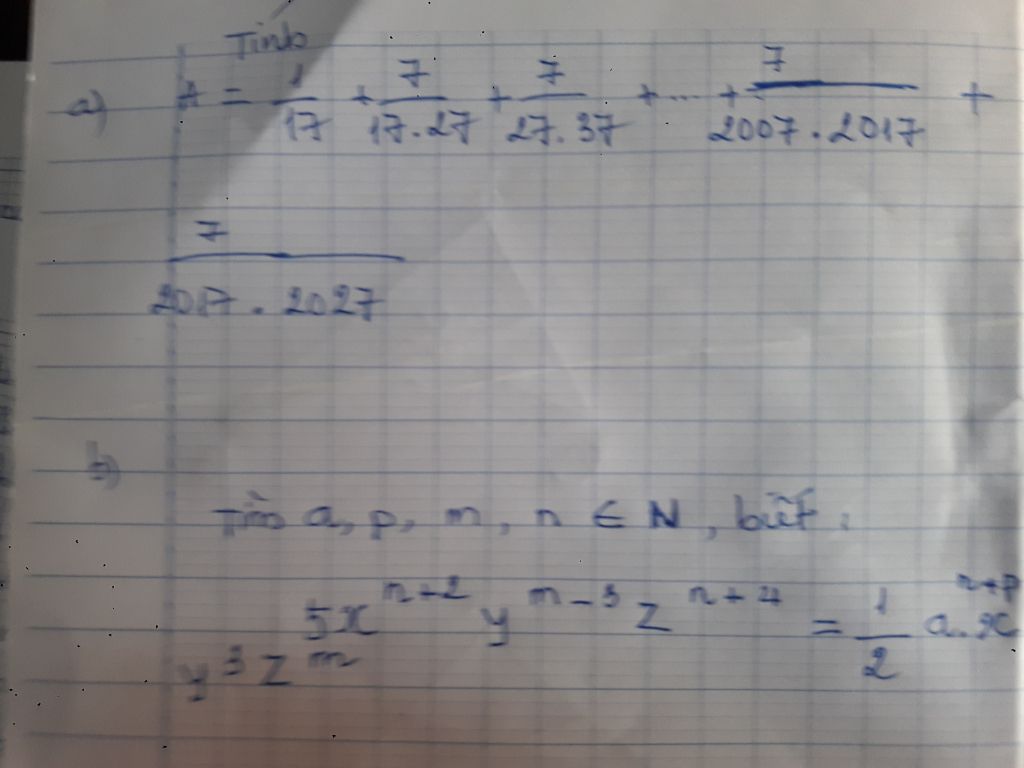 Tính
a) A = 1/17 + 7/17.27 + 7/27.37 + ... + 7/2007.2017 +
7/2017.2027
b)
Tìm a, p, m, n ∈ N, biết:
5x^{n+2} y^{m-3} z^{n+4} = 1/2 a.x^{n+p}
y^3 z^m